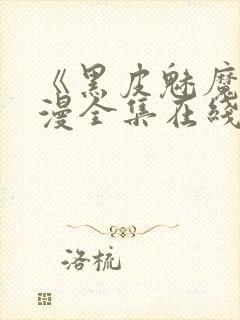 《黑皮魅魔
漫全集在线
洛梳